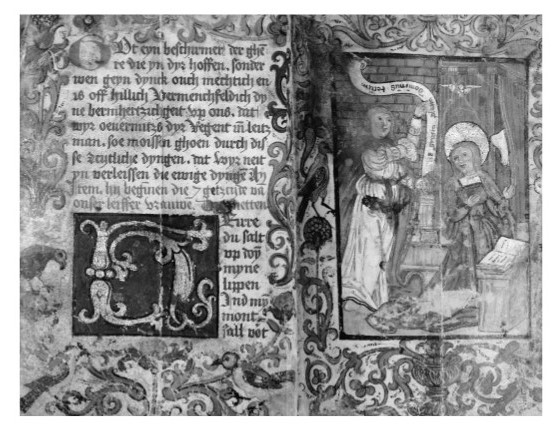 GOt eyn beschirmer der ghē
re die yn dyr hoffen. sonder
wen geyn dynck ouch mechtich en
is off hillich Vermenchfeldich dy
ne bermhertzicheit vp ons. dat
wyr oeuermitzs dyr Regent vn̄ leitz
man. soe moissen ghoen durch dis
se zeitliche dyngen. dat wyr neit
yn verleissen die ewige dynge
Item. hy beginen die 7 getzide va
onser leiffer vrauwe. metten
HErre
du salt
vp doy
myne
lippen
Ind my
mont
sall vor
dominus tecum